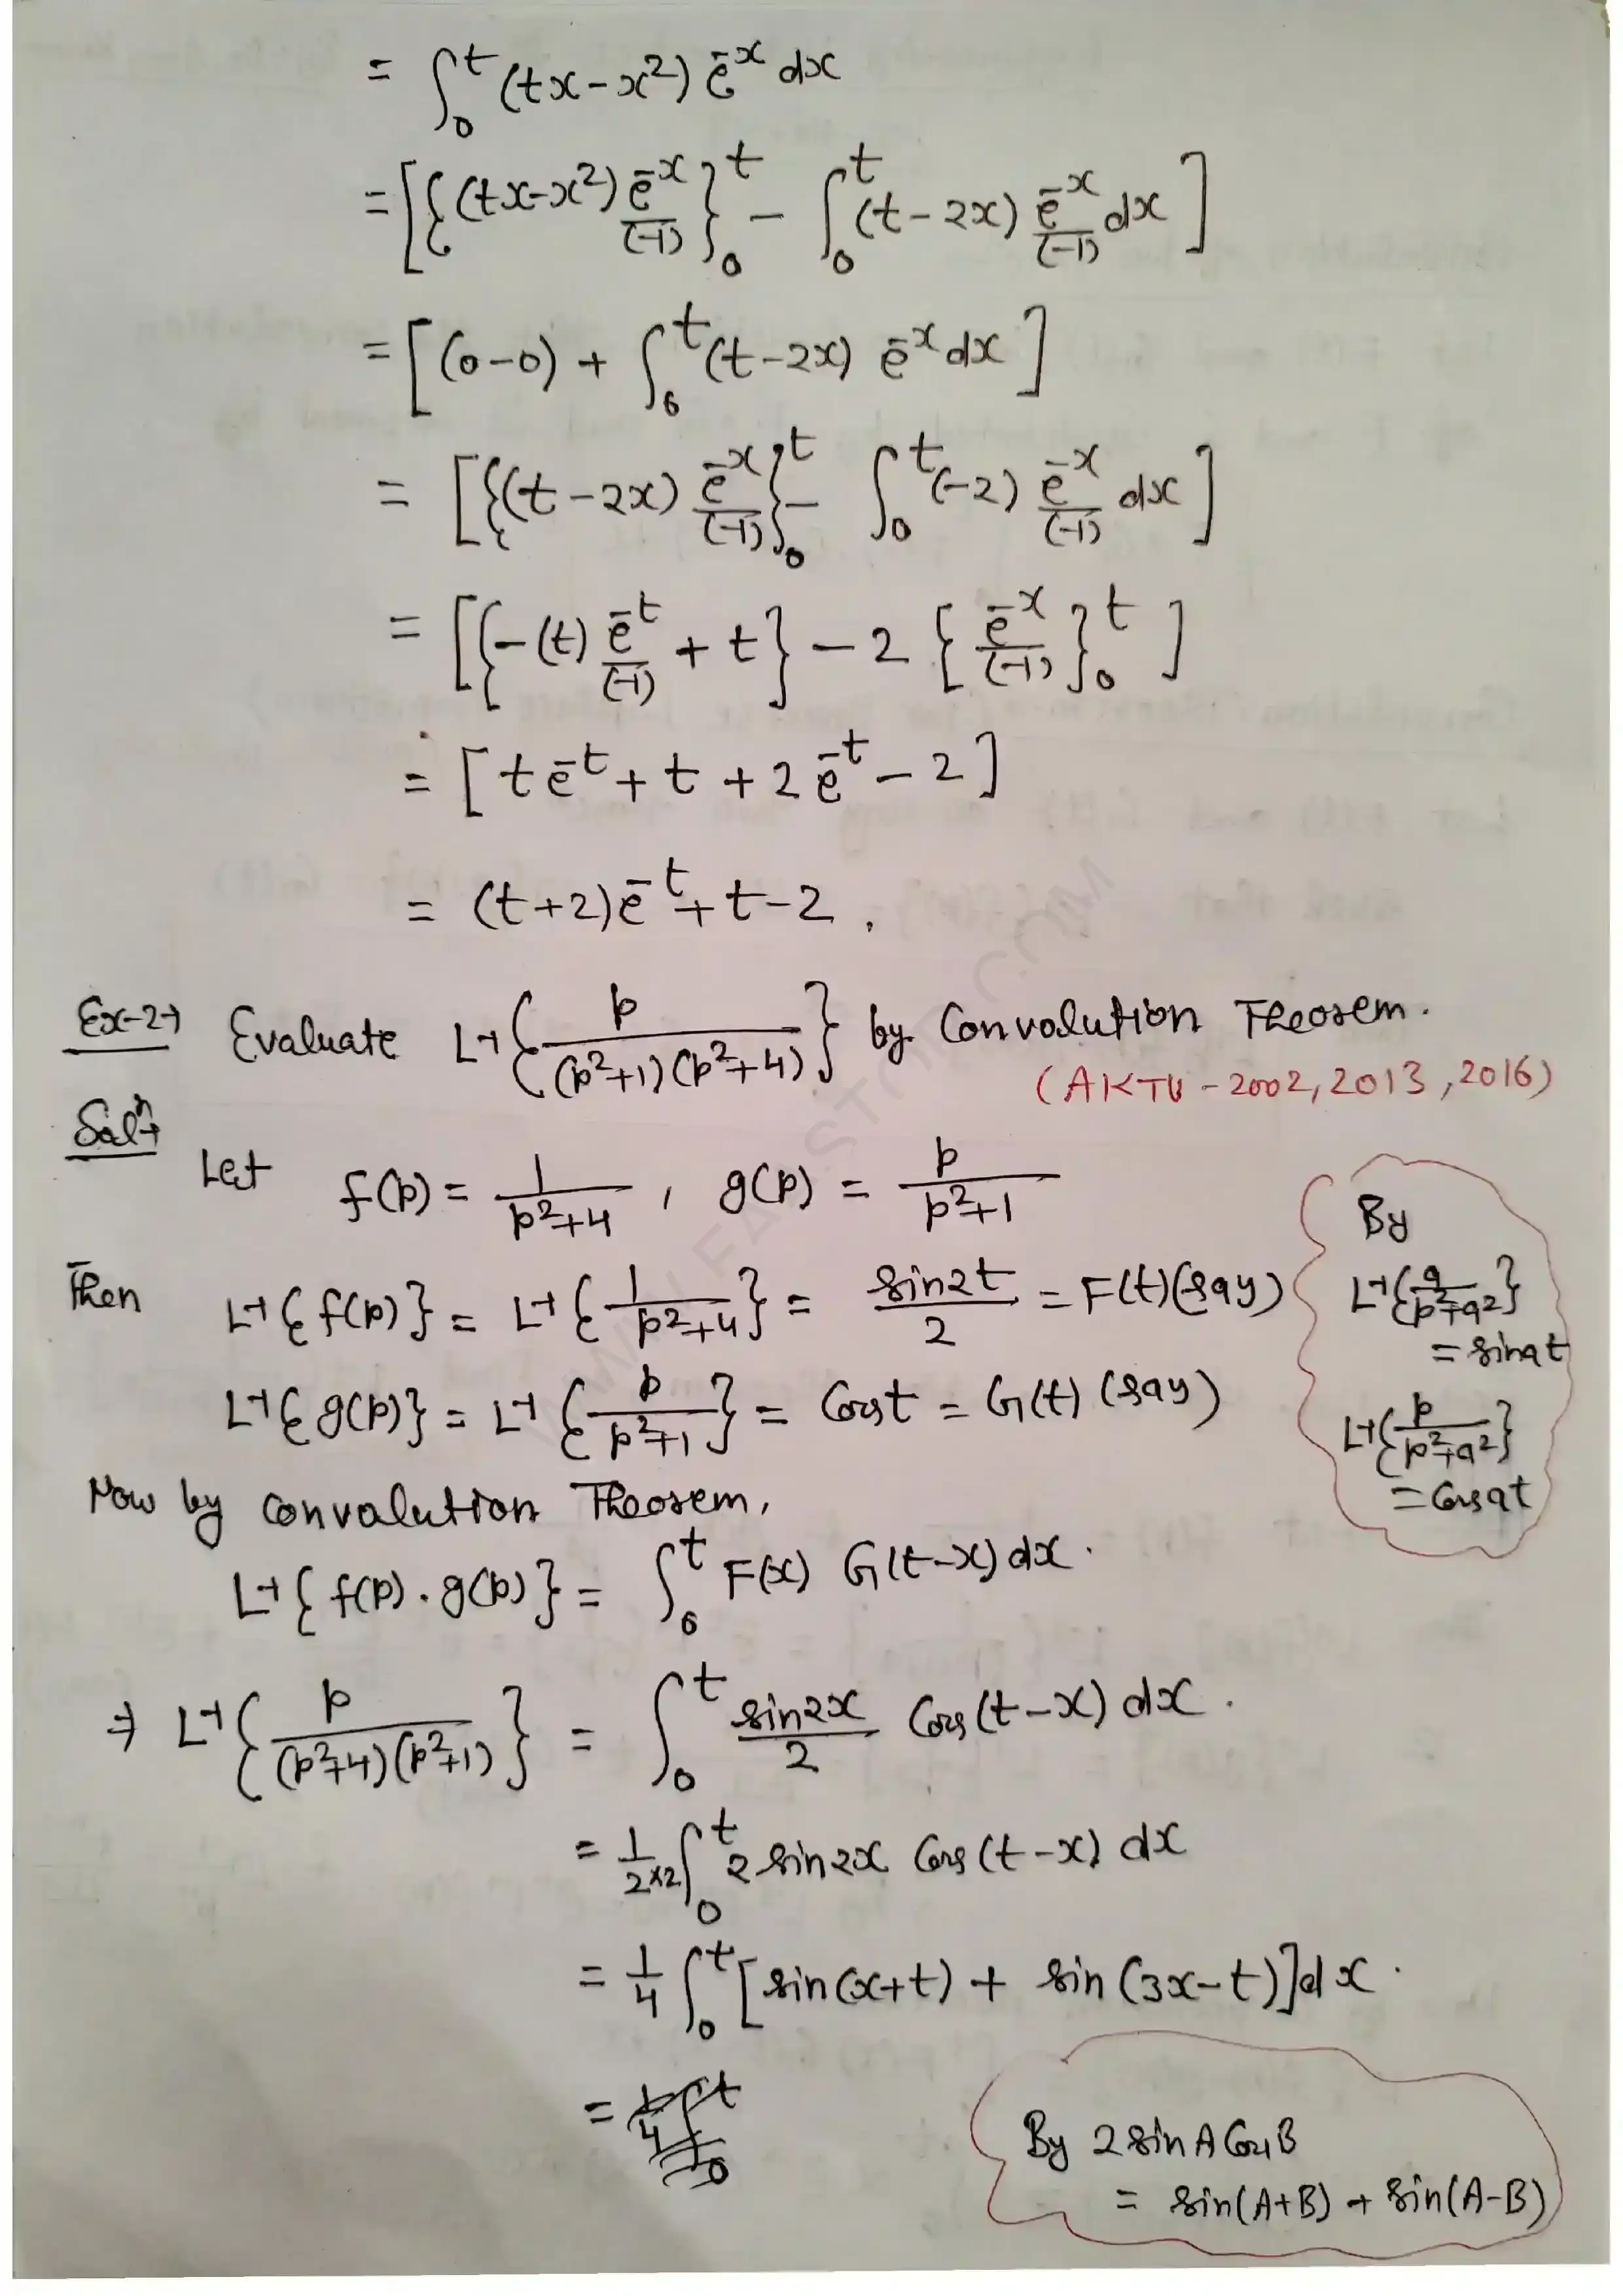 = ∫₀ᵗ (tx-x²) e⁻ˣ dx
= [{(tx-x²) e⁻ˣ/(-1)}₀ᵗ - ∫₀ᵗ (t-2x) e⁻ˣ/(-1) dx]
= [(0-0) + ∫₀ᵗ (t-2x) e⁻ˣ dx]
= [{(t-2x) e⁻ˣ/(-1)}₀ᵗ - ∫₀ᵗ (-2) e⁻ˣ/(-1) dx]
= [{-(t) e⁻ᵗ/(-1) + t} - 2 {e⁻ˣ/(-1)}₀ᵗ]
= [t e⁻ᵗ + t + 2 e⁻ᵗ - 2]
= (t+2) e⁻ᵗ + t - 2 .
Ex-2→ Evaluate L⁻¹{p/((p²+1)(p²+4))} by Convolution Theorem.
(AKTU - 2002, 2013, 2016)
Solⁿ→
Let f(p) = 1/(p²+4) , g(p) = p/(p²+1)
Then L⁻¹{f(p)} = L⁻¹{1/(p²+4)} = sin2t/2 = F(t) (say)
L⁻¹{g(p)} = L⁻¹{p/(p²+1)} = Cost = G(t) (say)
By
L⁻¹{a/(p²+a²)}
= sinat
L⁻¹{p/(p²+a²)}
= Cosat
Now by Convolution Theorem,
L⁻¹{f(p).g(p)} = ∫₀ᵗ F(x) G(t-x) dx .
⇒ L⁻¹{p/((p²+4)(p²+1))} = ∫₀ᵗ sin2x/2 Cos(t-x) dx .
= 1/(2×2) ∫₀ᵗ 2 sin2x Cos(t-x) dx
= 1/4 ∫₀ᵗ [sin(x+t) + sin(3x-t)] dx .
= 1/4 ∫₀ᵗ
By 2 sinA CosB
= sin(A+B) + sin(A-B)